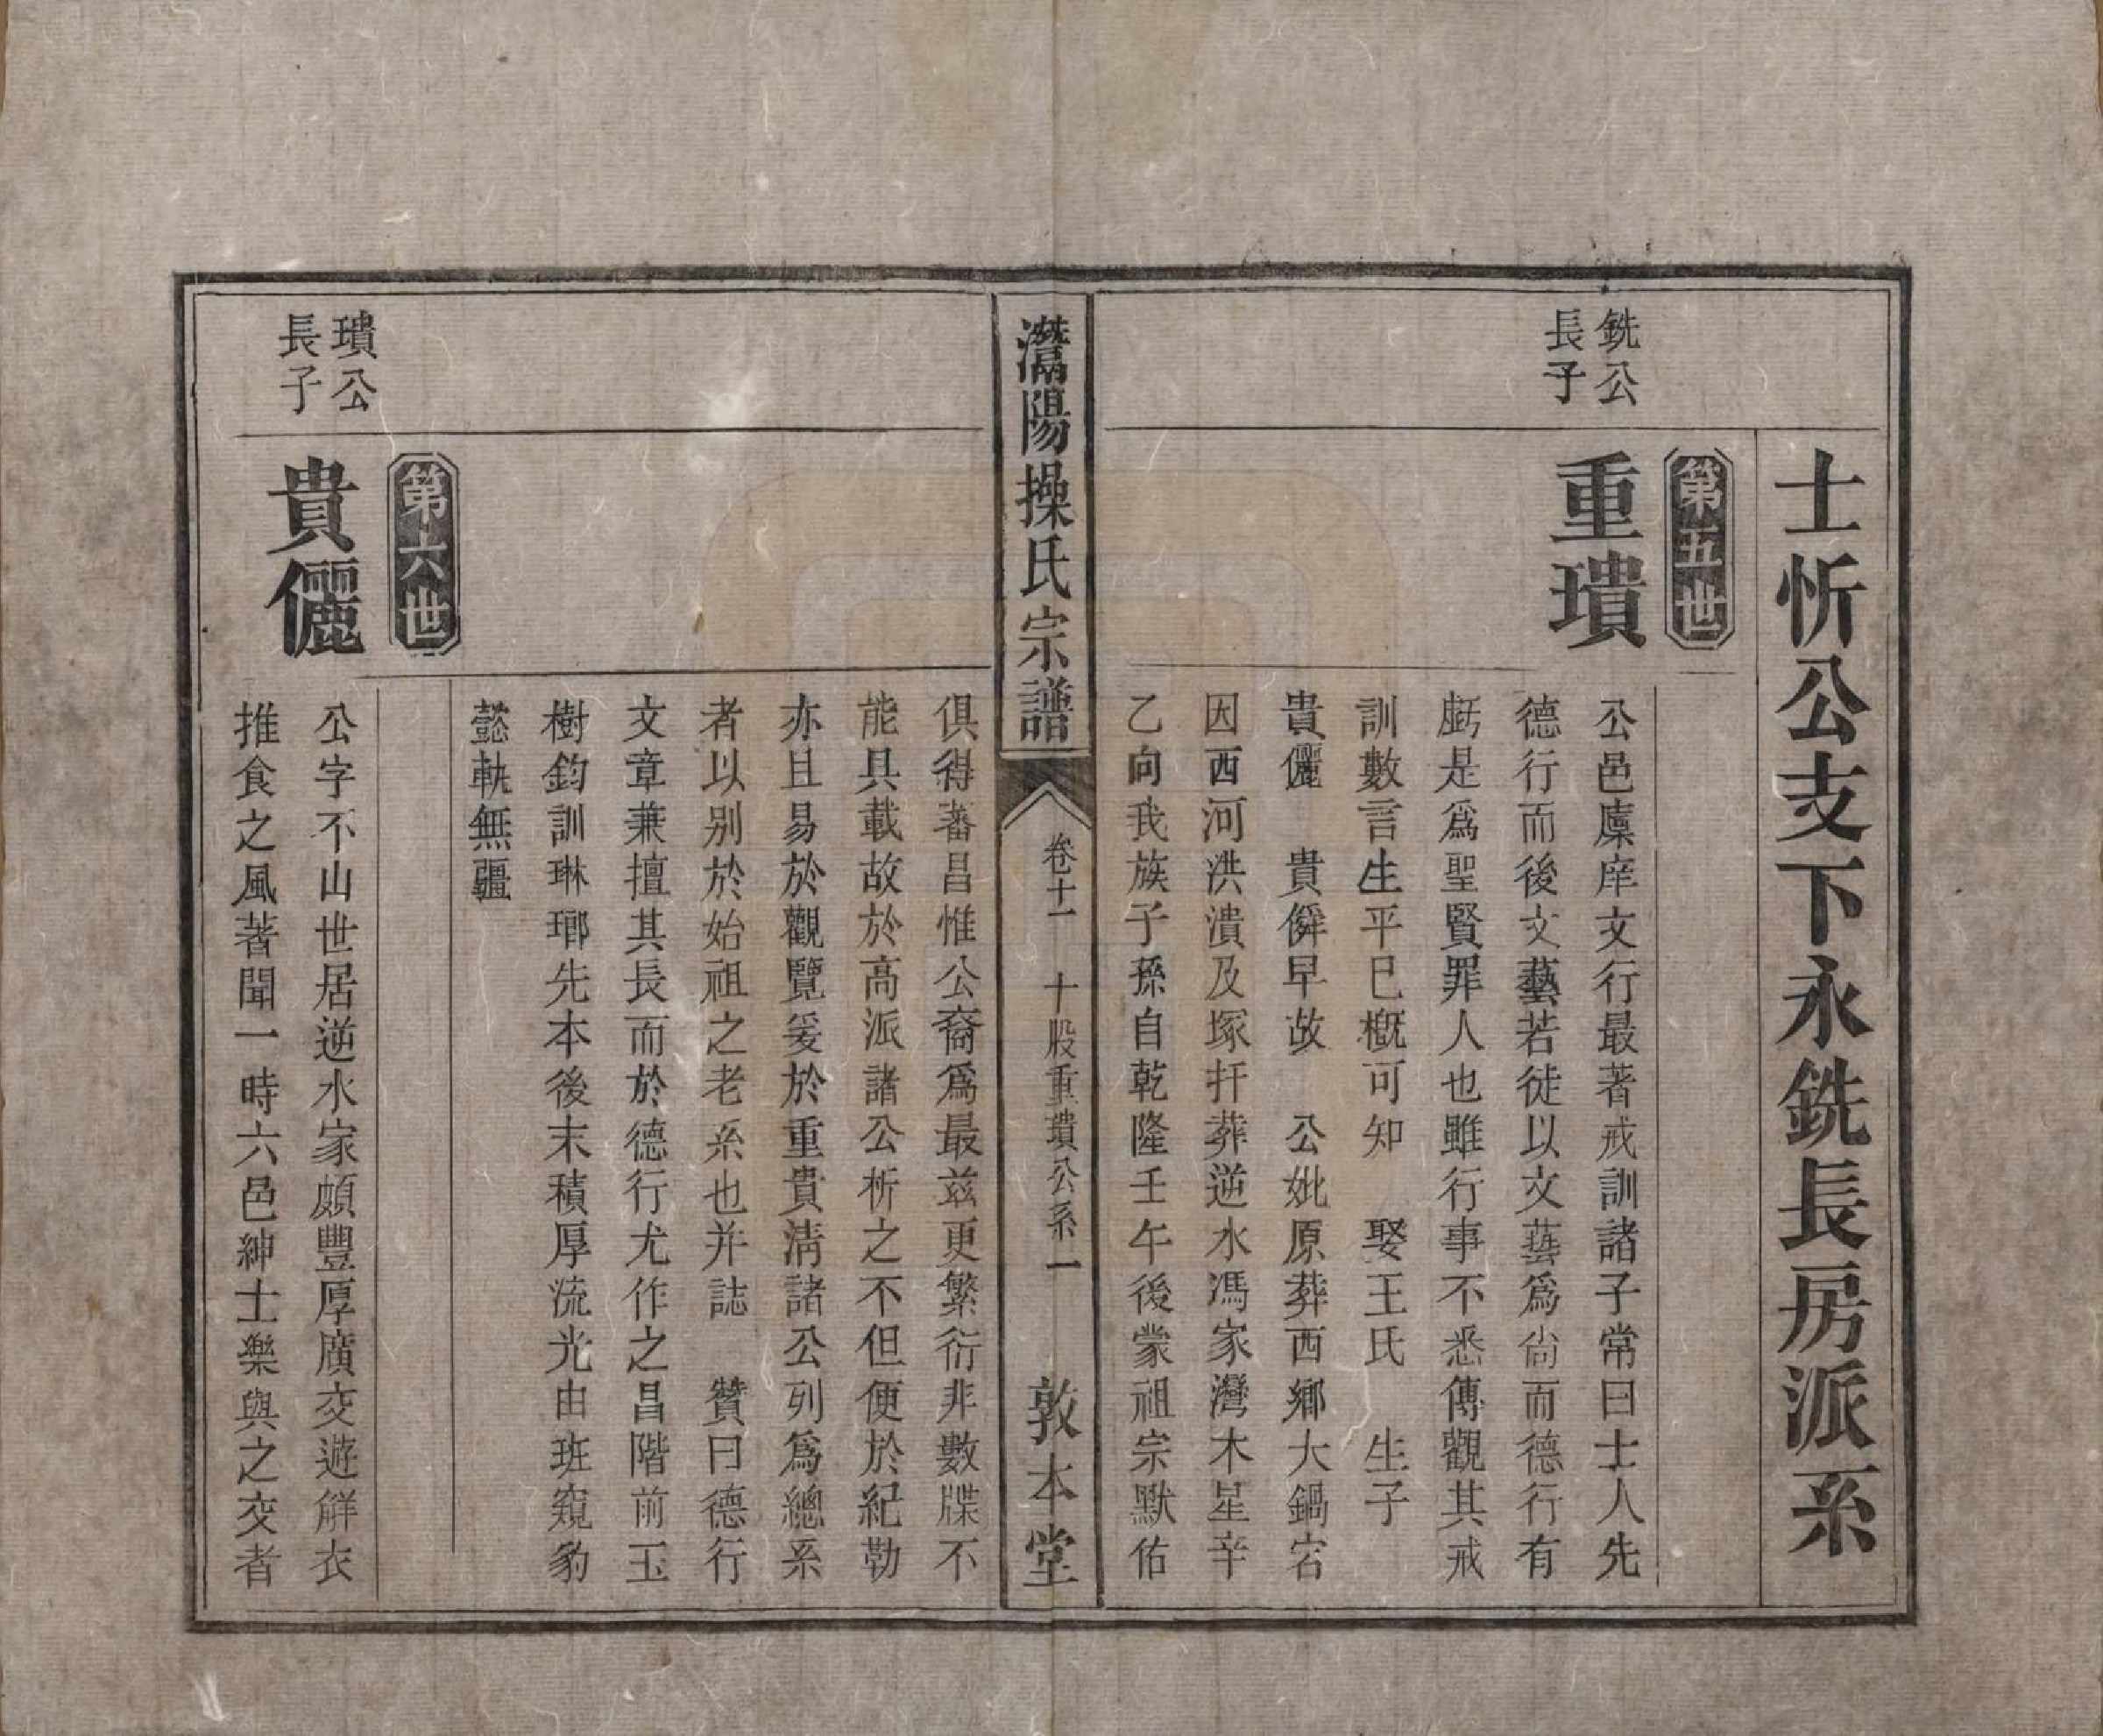 士忻公支下永銑長房派系
第五世
銑公
長子
重璝
公邑廩庠文行最著戒訓諸子常曰士人先
德行而後文藝若徒以文藝爲尙而德行有
虧是爲聖賢罪人也雖行事不悉傳觀其戒
訓數言生平已槪可知 娶王氏 生子
貴儷 貴僯早故 公妣原葬西鄉大鍋宕
因西河洪潰及塚扞葬逆水馮家灣木星辛
乙向我族子孫自乾隆壬午後蒙祖宗默佑
灊陽操氏宗譜
卷十一 十股重璝公系 一
敦本堂
俱得蕃昌惟公裔爲最茲更繁衍非數牒不
能具載故於高派諸公析之不但便於紀勒
亦且易於觀覽爰於重貴淸諸公列爲總系
者以别於始祖之老系也并誌 贊曰德行
文章兼擅其長而於德行尤作之昌階前玉
樹鈞訓琳瑯先本後末積厚流光由班窺豹
懿軌無疆
第六世
璝公
長子
貴儷
公字不山世居逆水家頗豐厚廣交遊解衣
推食之風著聞一時六邑紳士樂與之交者